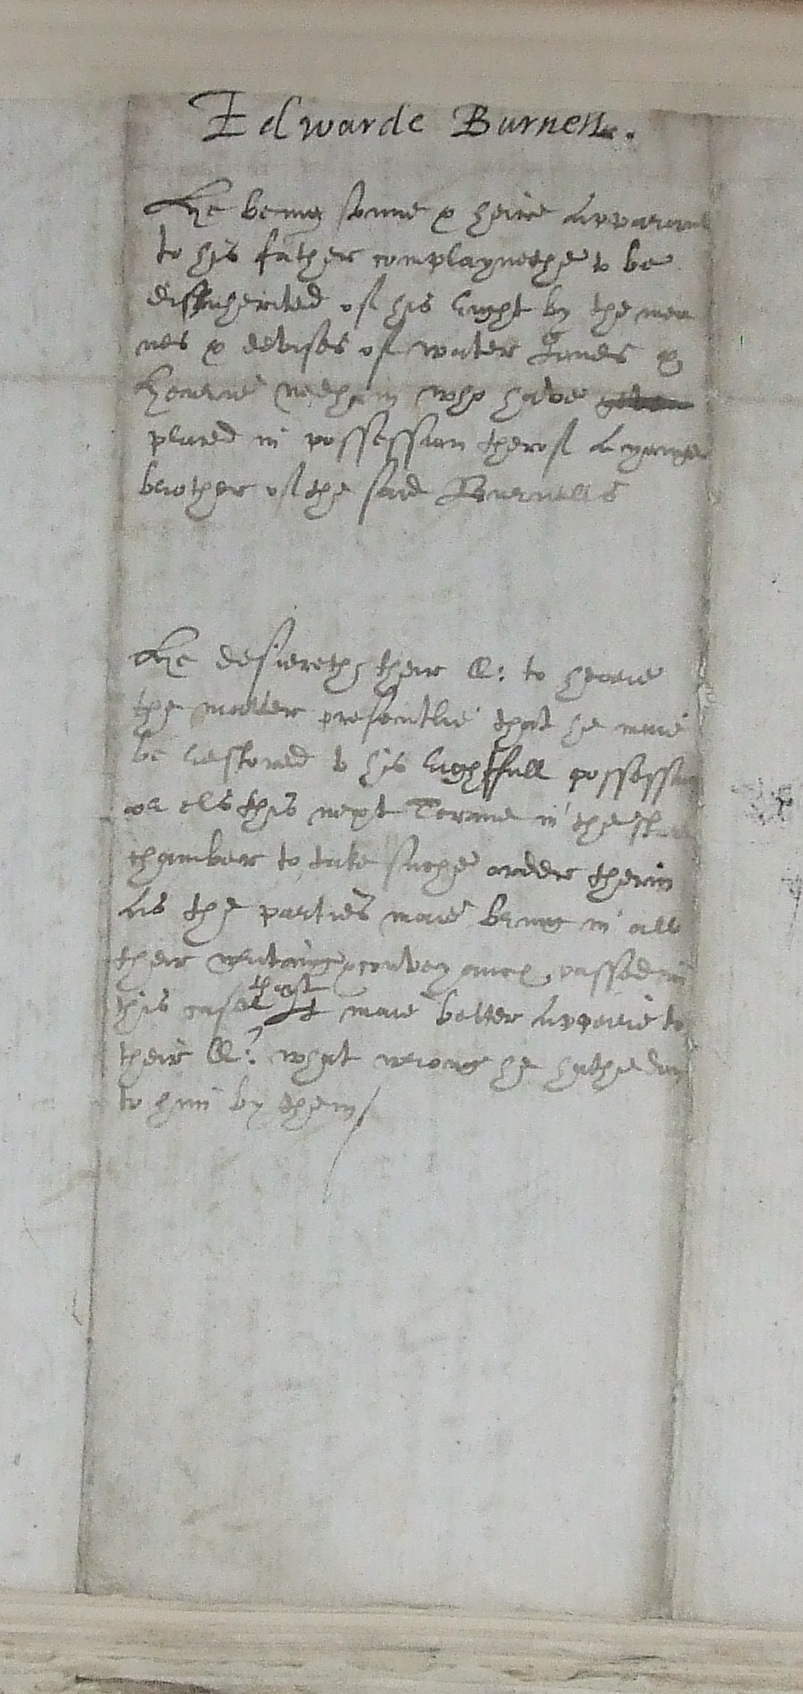 Edwarde Burnell.
He being sonne & heire apparant
to his father complaynethe to be
disinherited of his right by the mea
nes & devises of water Jones &
needham who have
placed in possession therof a yonger
brother of the said Burnells
He desireth their LL: to heare
the matter presentlie that he maie
be restored to his rightfull possession
or els this next Terme in the starr
chamber to take suche order therin
as the parties maie bring in all
their writings & conveyances passed in
this case that It maie better appeare to
their LL: what wrong he hathe don
to him by them/